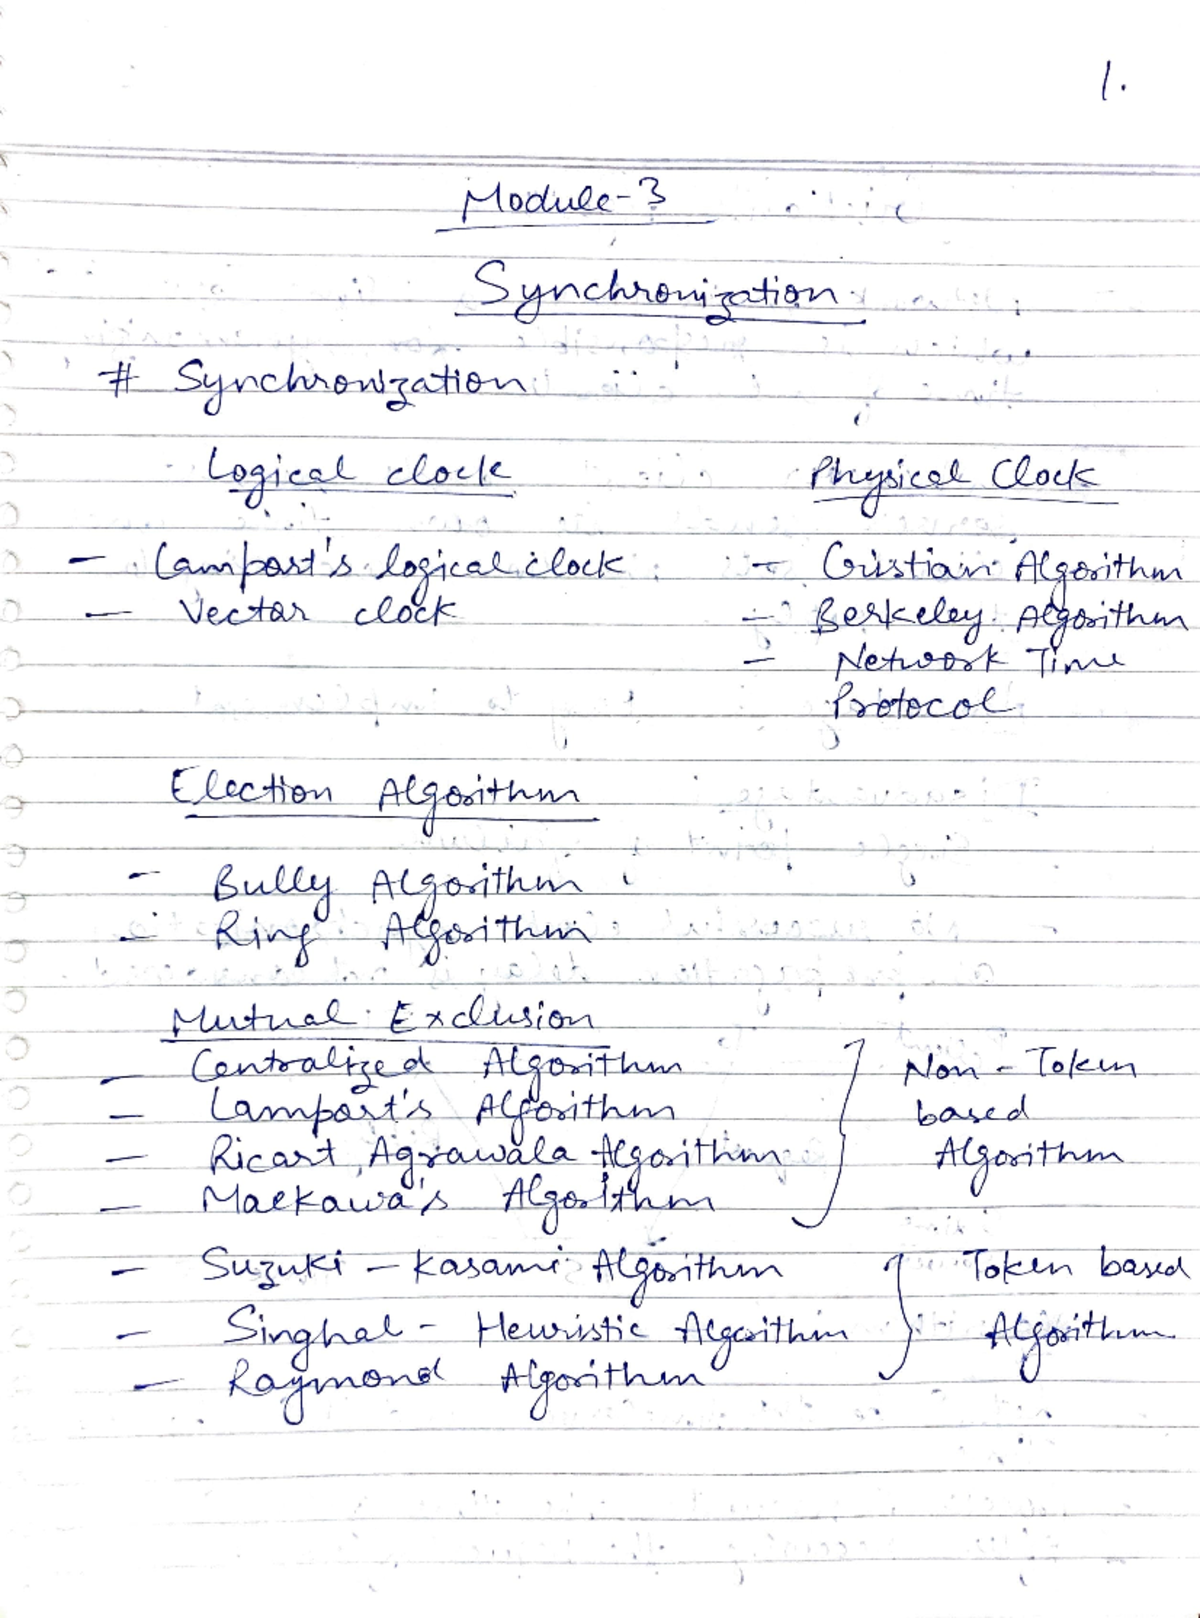 1.
Module-3
Synchronization
# Synchronization
Logical clock
- Lamport's logical clock
- Vector clock
Physical Clock
- Cristian Algorithm
- Berkeley Algorithm
- Network Time
Protocol
Election Algorithm
- Bully Algorithm
- Ring Algorithm
Mutual Exclusion
- Centralized Algorithm
- Lamport's Algorithm
- Ricart, Agrawala Algorithm
- Maekawa's Algorithm
Non-Token
based
Algorithm
- Suzuki - Kasami Algorithm
- Singhal - Heuristic Algorithm
- Raymond Algorithm
Token based
Algorithm